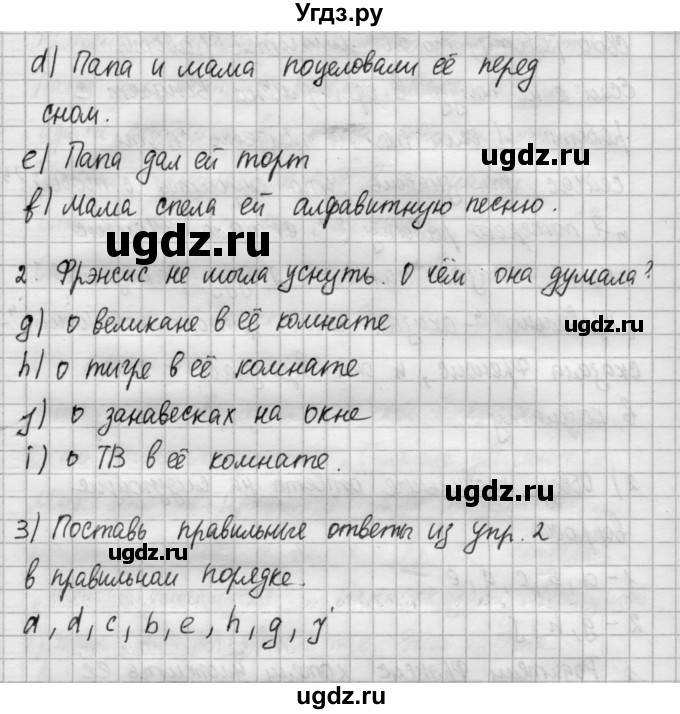 Угдз.ру
d) Папа и мама поцеловали её перед
сном.
e) Папа дал ей торт
ugdz.ru
f) Мама спела ей алфавитную песню.
ugdz.ru
2. Фрэнсис не могла уснуть. О чём она думала?
g) о великане в её комнате
ugdz.ru
h) о тигре в её комнате
j) о занавесках на окне
i) о ТВ в её комнате.
ugdz.ru
3) Поставь правильные ответы из упр. 2
ugdz.ru
в правильном порядке.
a, d, c, b, e, h, g, j
ugdz.ru
ugdz.ru